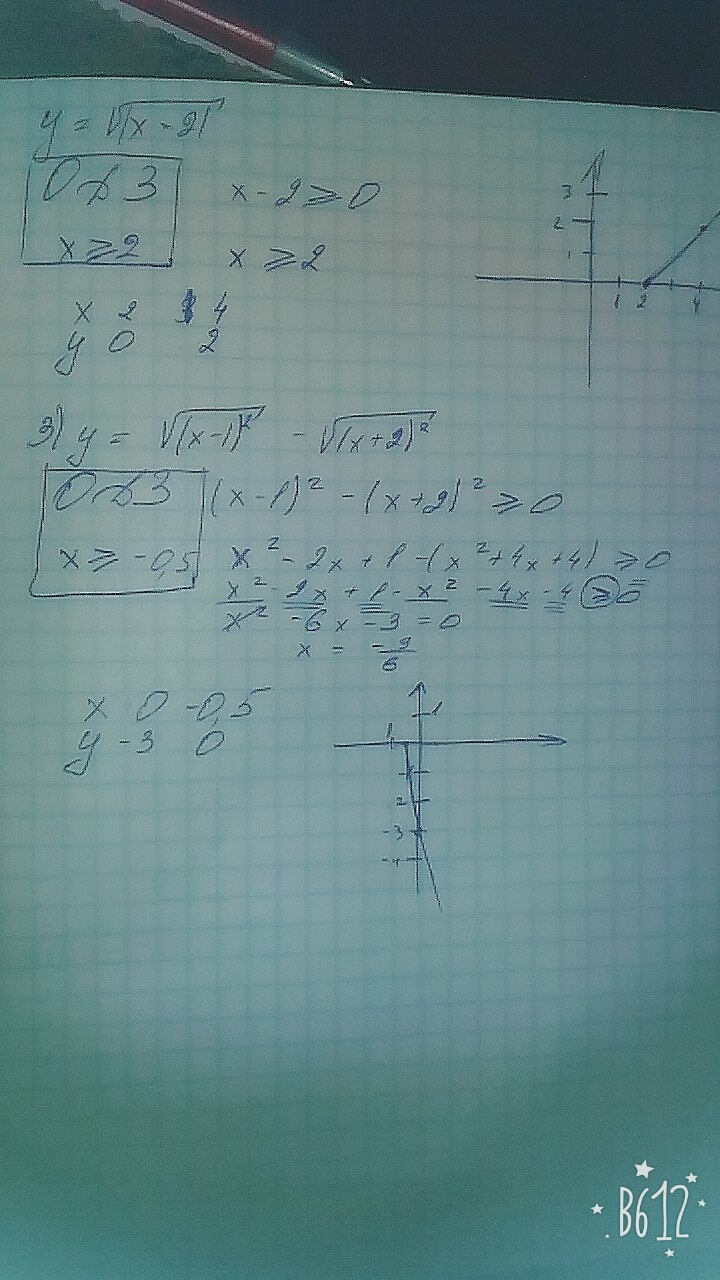 y = √|x - 2|
ОДЗ x - 2 ⩾ 0
x ⩾ 2 x ⩾ 2
x 2 4
y 0 2
3
2
1
1 2 4
3) y = √(x-1)² - √(x+2)²
ОДЗ (x - 1)² - (x + 2)² ⩾ 0
x ⩾ -0,5 x² - 2x + 1 - (x² + 4x + 4) ⩾ 0
x² - 2x + 1 - x² - 4x - 4 ⩾ 0
x² - 6x - 3 = 0
x = -3/6
x 0 -0,5
y -3 0
1
1
2
-3
-4
B612